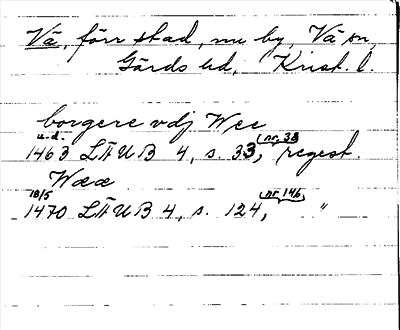 Vä, förr stad, nu by, Vä sn,
Gärds hd, Krist. l.
borgere vdj Wee
u.d. (nr. 38)
1463 LÄUB 4, s. 33, regest.
Wææ
18/5 (nr 146)
1470 LÄUB 4, s. 124, "